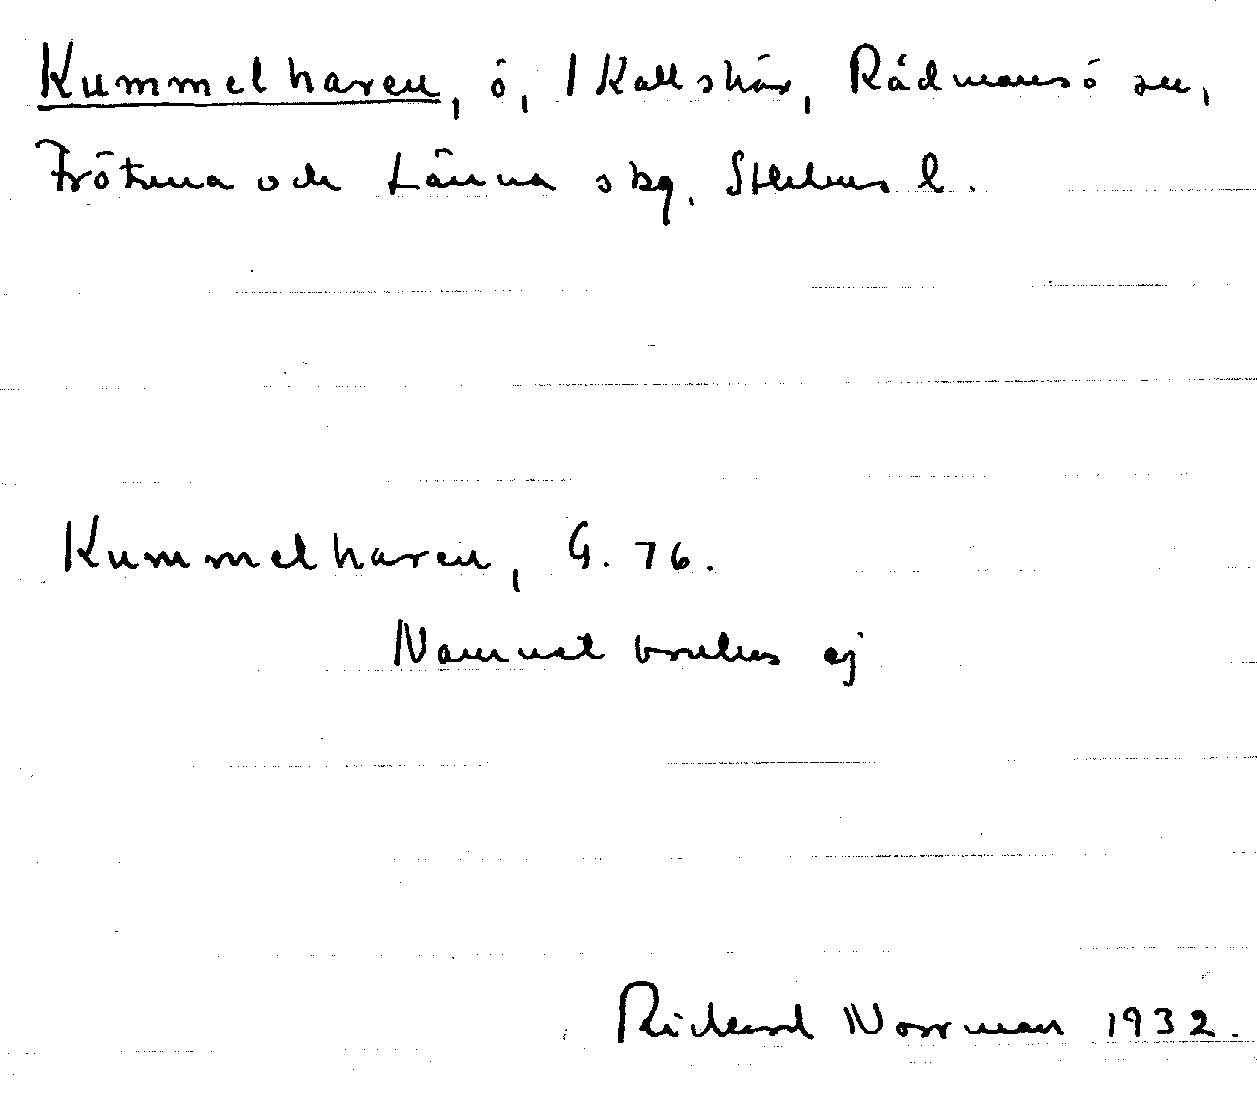 Kummelharen, ö, 1 Kallskär, Rådmansö sn,
Frötuna och Länna skg. Sthlms l.
Kummelharen, G. 76.
Namnet brukas ej
Rickard Norrman 1932.